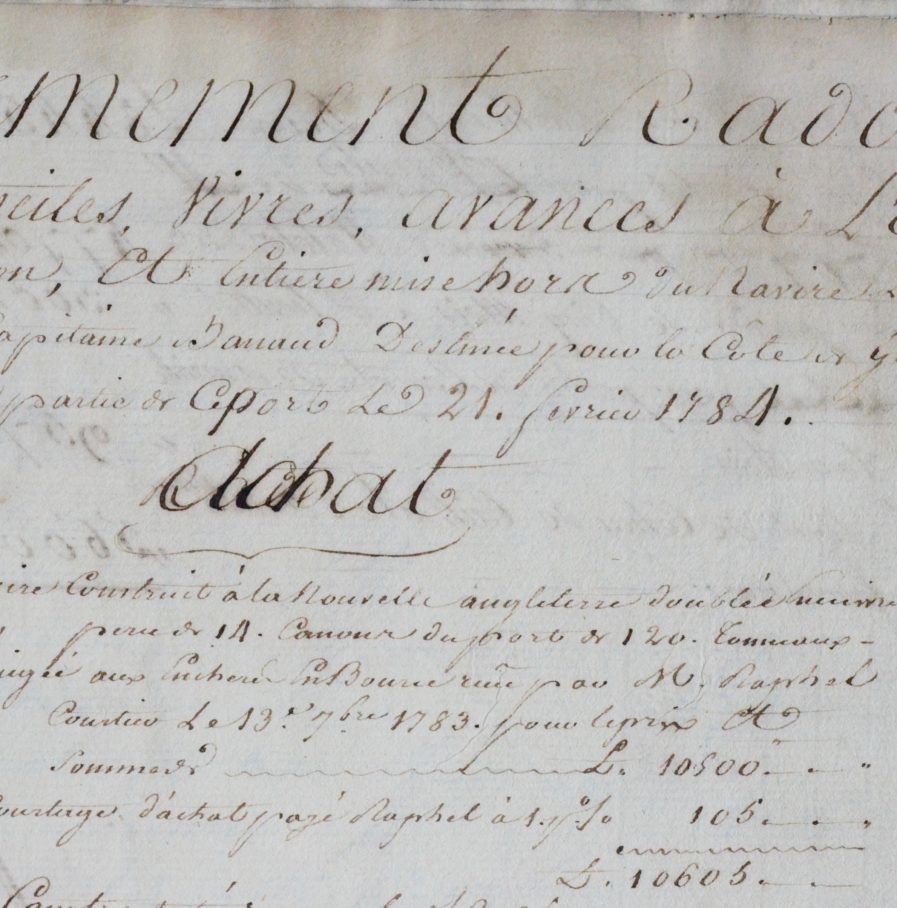 mement Rado
Vivres, avances à L'
Et Entiere mise hors du Navire
apitaine Banaud Destinée pour la Côte de
partie de Ce port Le 21. fevrier 1784.
Achat
Construit à la Nouvelle angleterre doublée
de 14. Canons du port de 120. Tonneaux
aux Encheres En Bource par M. Raphel
Courtier Le 13.e 7bre 1783. pour le prix Et
Somme de L. 10500. "
Courtage d'achat payé Raphel à 1. p% 105. "
L. 10605.